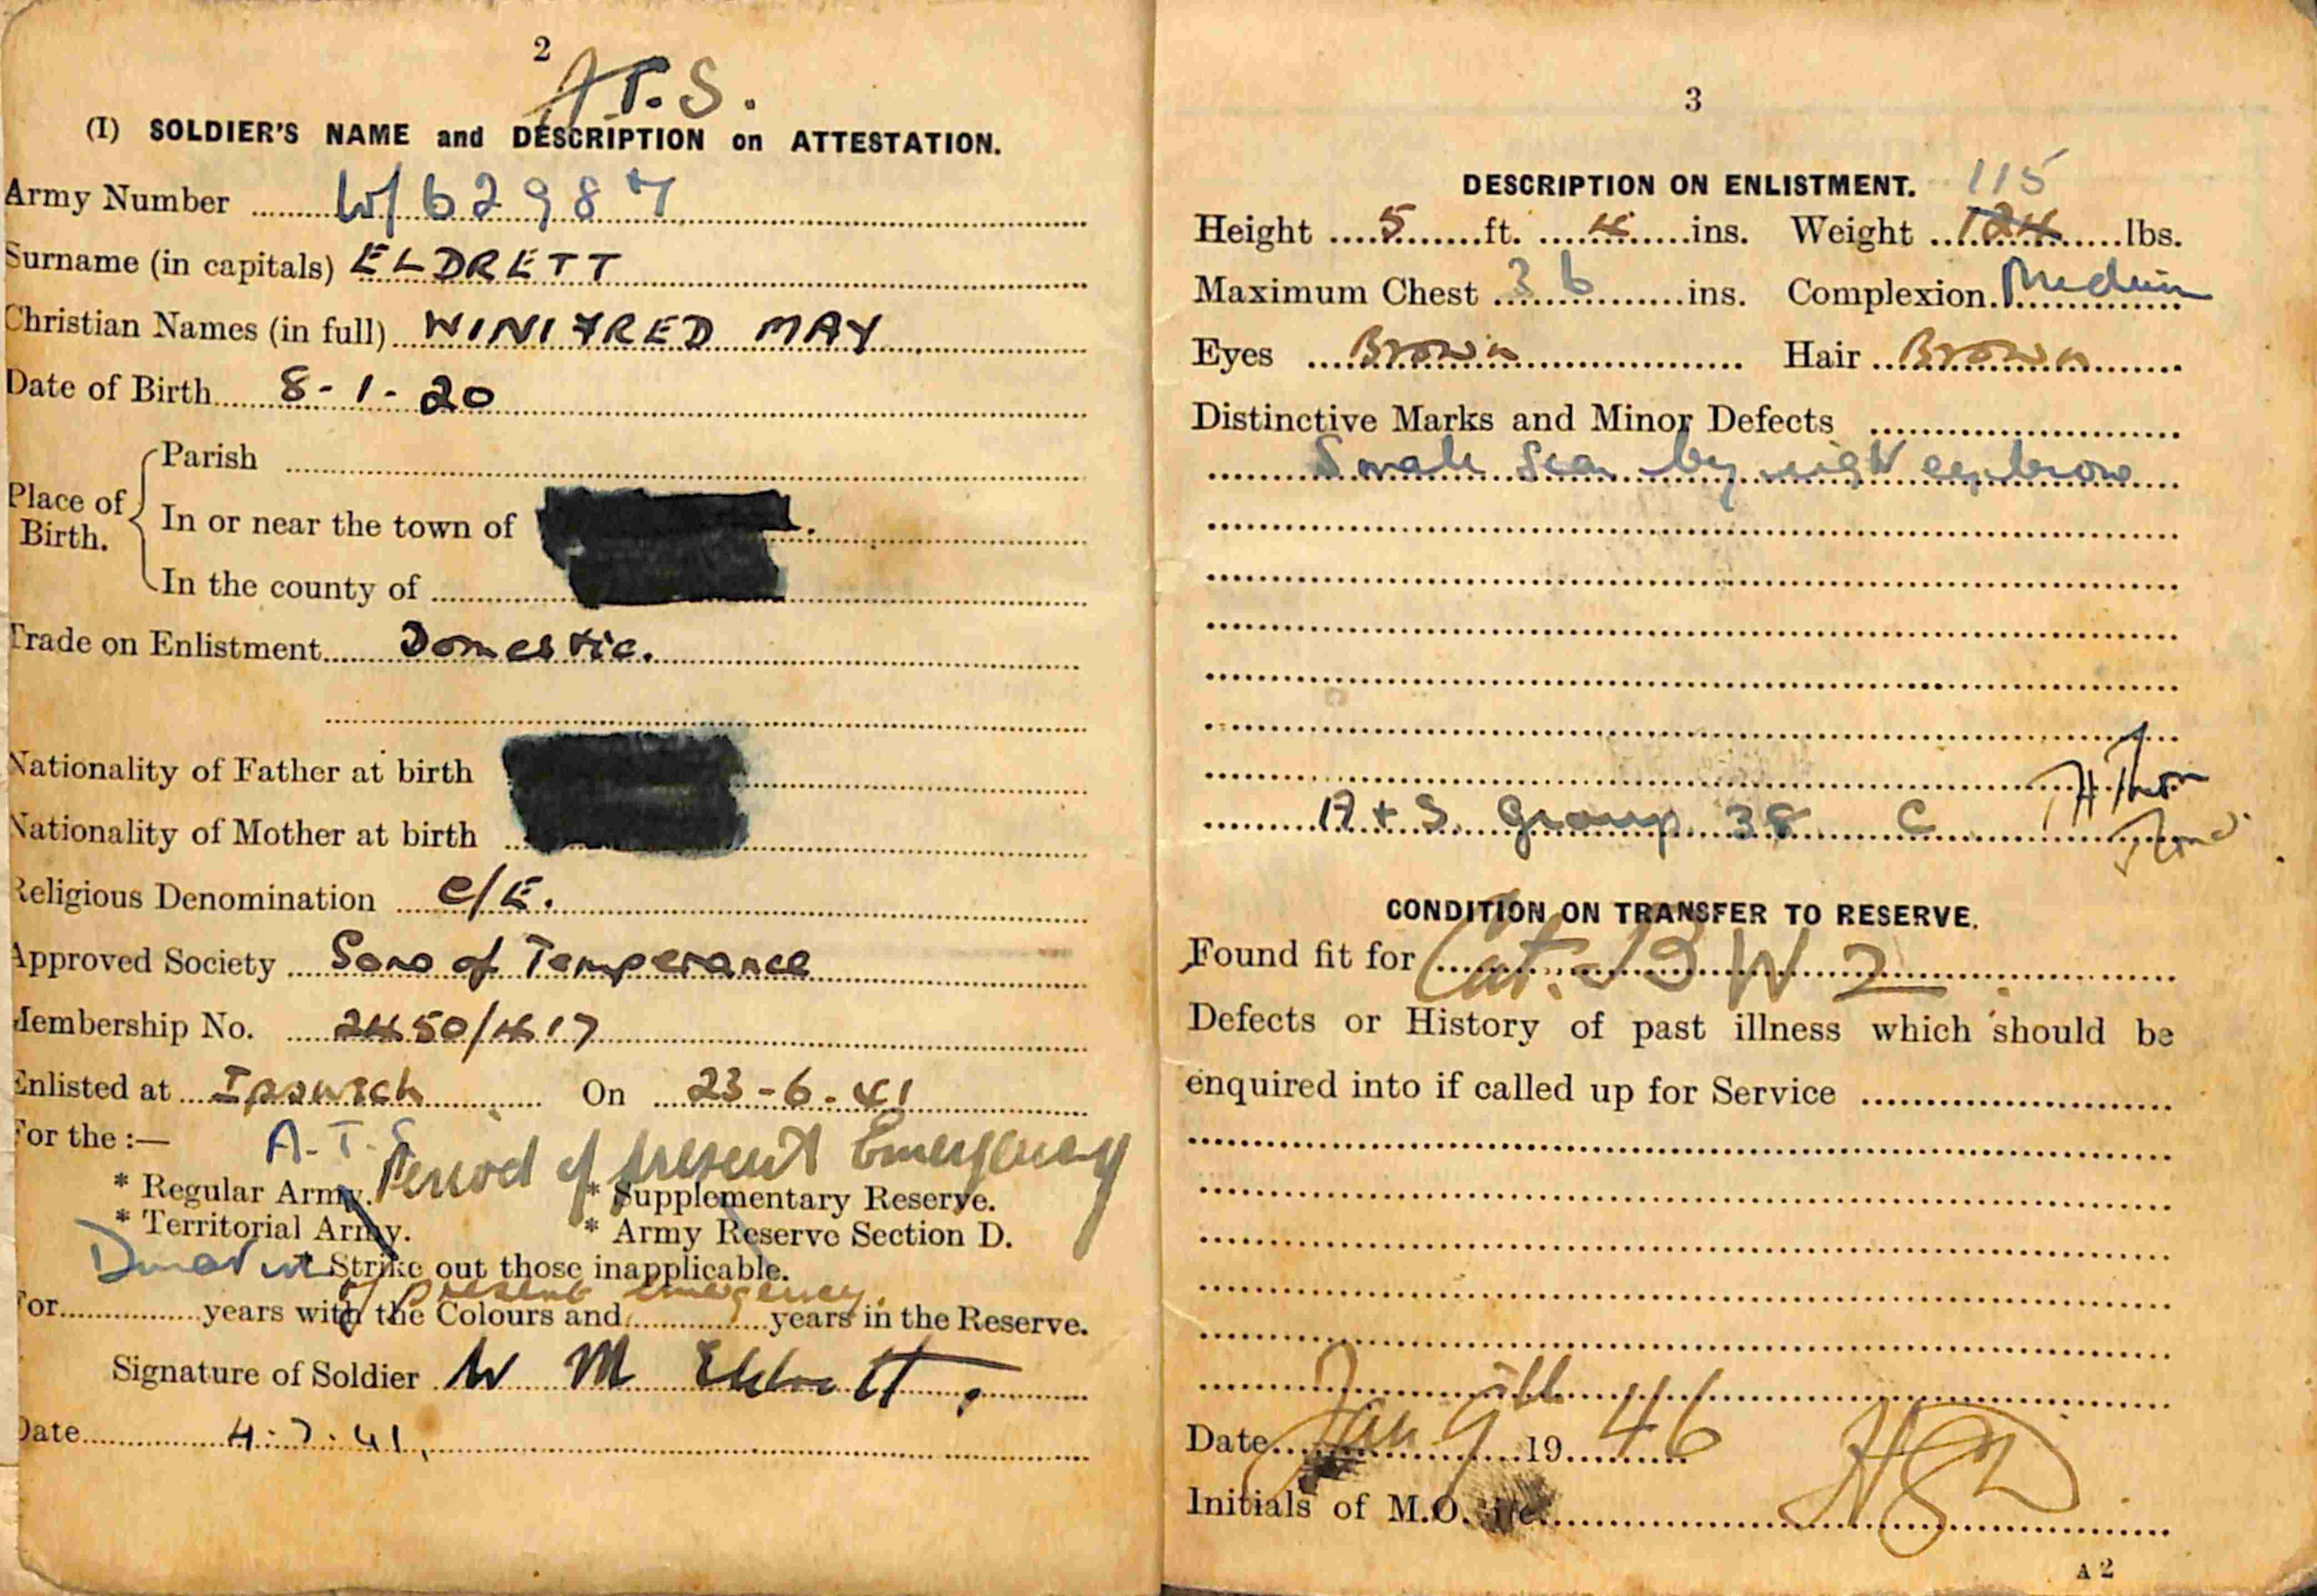 2
A.T.S.
(I) SOLDIER'S NAME and DESCRIPTION on ATTESTATION.
Army Number W/62987
Surname (in capitals) ELDRETT
Christian Names (in full) WINIFRED MAY
Date of Birth 8-1-20
Place of Birth.
Parish
In or near the town of
In the county of
Trade on Enlistment Domestic.
Nationality of Father at birth
Nationality of Mother at birth
Religious Denomination C/E.
Approved Society Sons of Temperance
Membership No. 2450/417
Enlisted at Ipswich On 23-6-41
For the :— A.T.S. Period of present Emergency
* Regular Army. * Supplementary Reserve.
* Territorial Army. * Army Reserve Section D.
Duration * Strike out those inapplicable.
of present emergency.
For years with the Colours and years in the Reserve.
Signature of Soldier W M Eldrett.
Date 4.7.41.
3
DESCRIPTION ON ENLISTMENT. 115
Height 5 ft. 4 ins. Weight 124 lbs.
Maximum Chest 36 ins. Complexion Medium
Eyes Brown Hair Brown
Distinctive Marks and Minor Defects
Small Scar by right eyebrow
A + S Group 38 C
CONDITION ON TRANSFER TO RESERVE.
Found fit for Cat. W 2
Defects or History of past illness which should be
enquired into if called up for Service
Date Jan 9th 1946
Initials of M.O.
A 2